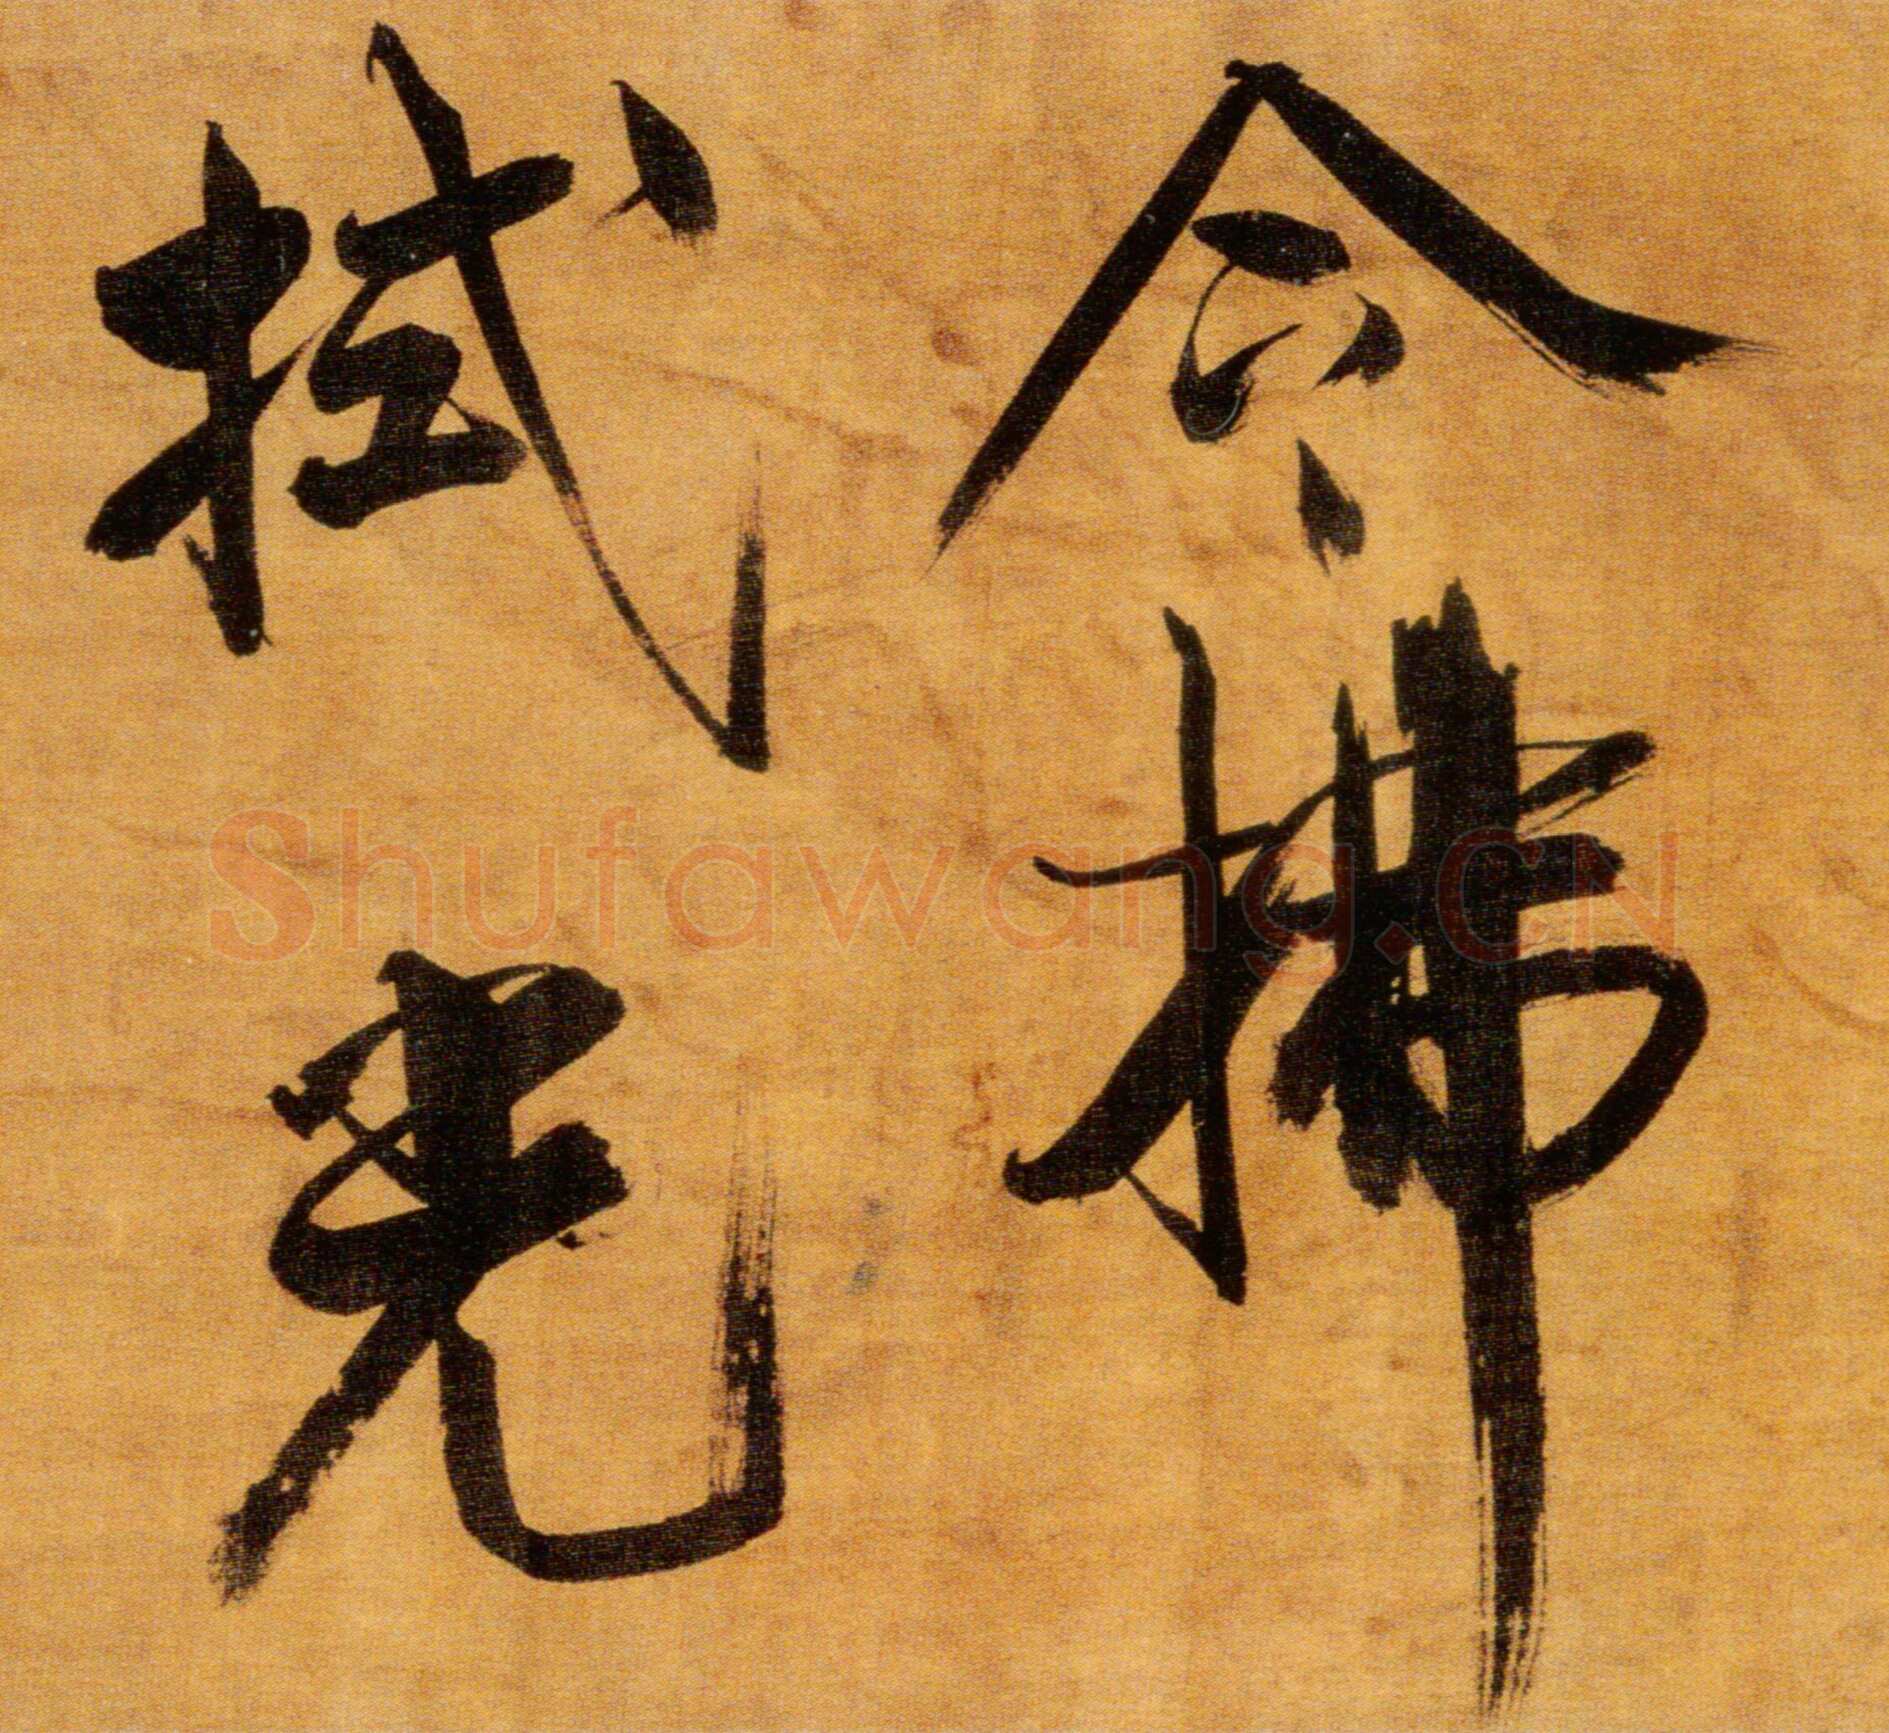 令拂
拭光
Shufawang.CN